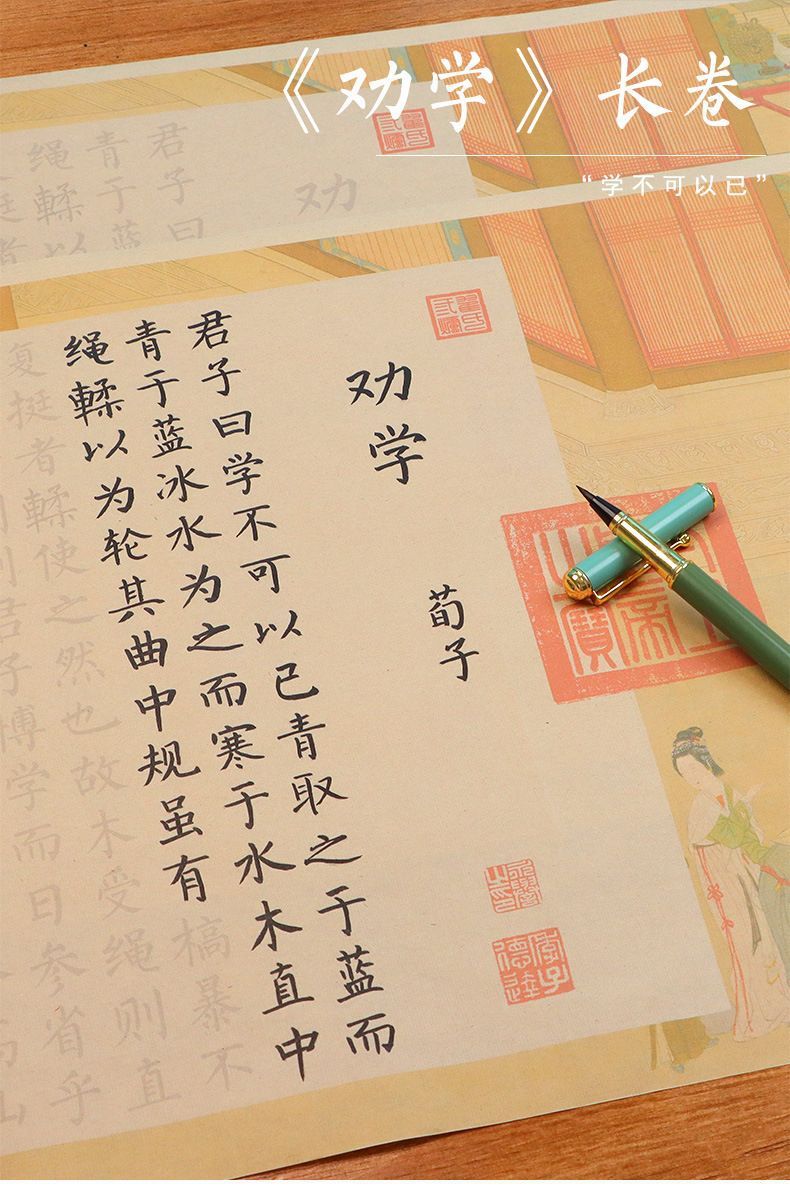 《劝学》长卷
“学不可以已”
劝
君子曰
青于蓝
绳輮以
劝学
荀子
君子曰学不可以已青取之于蓝而
青于蓝冰水为之而寒于水木直中
绳輮以为轮其曲中规虽有槁暴不
复挺者輮使之然也故木受绳则直
君子博学而日参省乎